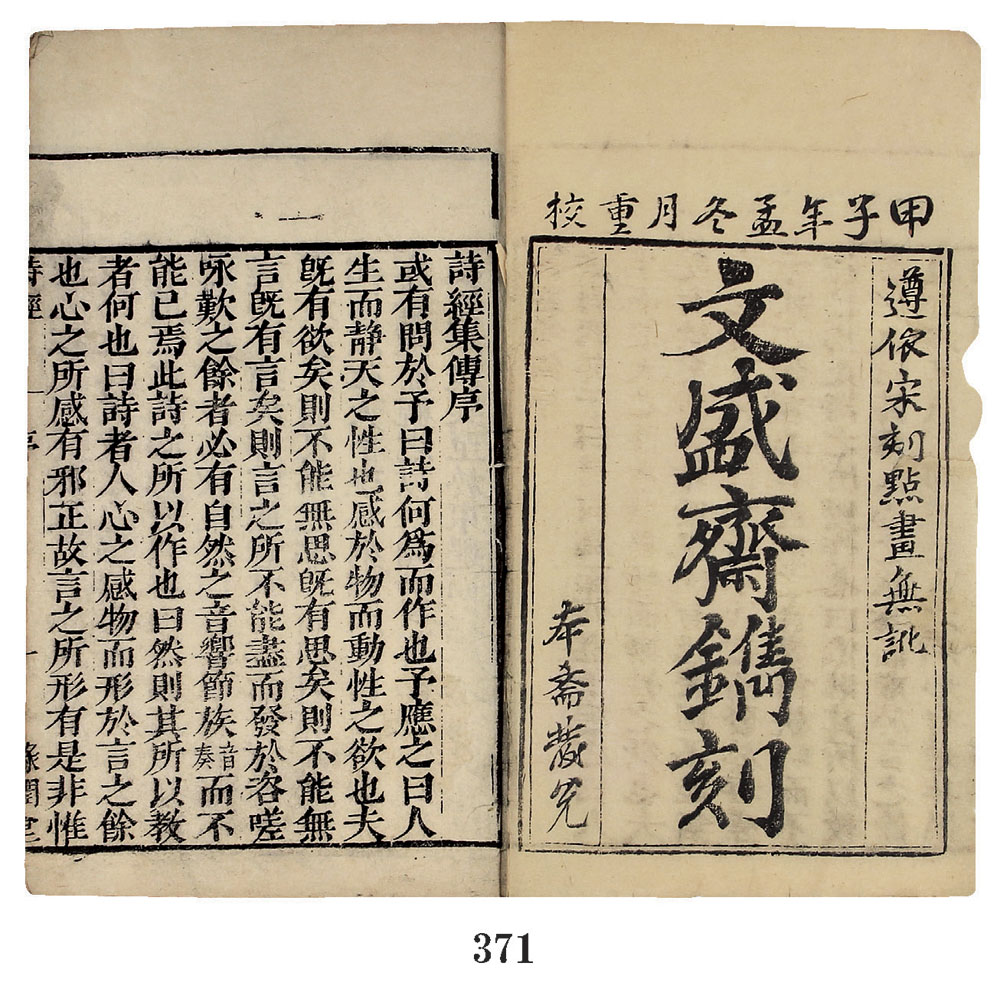 甲子年孟冬月重校
遵依宋刻點畫無訛
文盛齋鐫刻
本齋發兌
詩經集傳序
或有問於予曰詩何爲而作也予應之曰人
生而靜天之性也感於物而動性之欲也夫
旣有欲矣則不能無思旣有思矣則不能無
言旣有言矣則言之所不能盡而發於咨嗟
咏歎之餘者必有自然之音響節族音奏而不
能已焉此詩之所以作也曰然則其所以教
者何也曰詩者人心之感物而形於言之餘
也心之所感有邪正故言之所形有是非惟
詩經 序 一
371